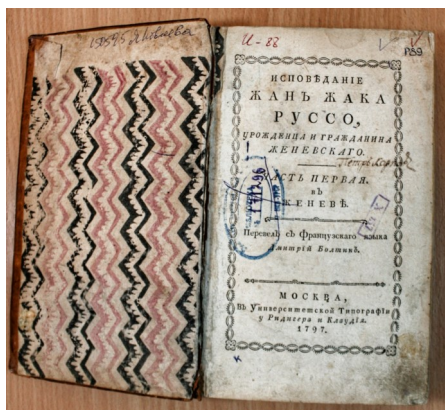 И-88
Р89
ИСПОВѢДАНІЕ
ЖАНЪ ЖАКА
РУССО,
УРОЖДЕНЦА И ГРАЖДАНИНА
ЖЕНЕВСКАГО.
ЧАСТЬ ПЕРВАЯ.
ВЪ
ЖЕНЕВѢ.
Перевелъ съ Французскаго языка
Дмитрій Болтинъ.
МОСКВА,
Въ Университетской Типографіи
у Ридигера и Клаудія.
1797.